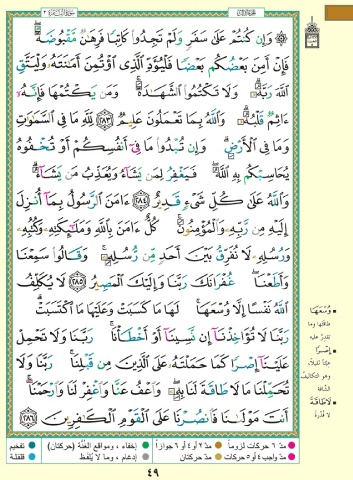 وَإِن كُنتُمْ عَلَىٰ سَفَرٍ وَلَمْ تَجِدُوا۟ كَاتِبًا فَرِهَـٰنٌ مَّقْبُوضَةٌ ۖ
فَإِنْ أَمِنَ بَعْضُكُم بَعْضًا فَلْيُؤَدِّ ٱلَّذِى ٱؤْتُمِنَ أَمَـٰنَتَهُۥ وَلْيَتَّقِ
ٱللَّهَ رَبَّهُۥ ۗ وَلَا تَكْتُمُوا۟ ٱلشَّهَـٰدَةَ ۚ وَمَن يَكْتُمْهَا فَإِنَّهُۥٓ
ءَاثِمٌ قَلْبُهُۥ ۗ وَٱللَّهُ بِمَا تَعْمَلُونَ عَلِيمٌ ٢٨٣ لِّلَّهِ مَا فِى ٱلسَّمَـٰوَٰتِ
وَمَا فِى ٱلْأَرْضِ ۗ وَإِن تُبْدُوا۟ مَا فِىٓ أَنفُسِكُمْ أَوْ تُخْفُوهُ
يُحَاسِبْكُم بِهِ ٱللَّهُ ۖ فَيَغْفِرُ لِمَن يَشَآءُ وَيُعَذِّبُ مَن يَشَآءُ ۗ
وَٱللَّهُ عَلَىٰ كُلِّ شَىْءٍ قَدِيرٌ ٢٨٤ ءَامَنَ ٱلرَّسُولُ بِمَآ أُنزِلَ
إِلَيْهِ مِن رَّبِّهِۦ وَٱلْمُؤْمِنُونَ ۚ كُلٌّ ءَامَنَ بِٱللَّهِ وَمَلَـٰٓئِكَتِهِۦ وَكُتُبِهِۦ
وَرُسُلِهِۦ لَا نُفَرِّقُ بَيْنَ أَحَدٍ مِّن رُّسُلِهِۦ ۚ وَقَالُوا۟ سَمِعْنَا
وَأَطَعْنَا ۖ غُفْرَانَكَ رَبَّنَا وَإِلَيْكَ ٱلْمَصِيرُ ٢٨٥ لَا يُكَلِّفُ
ٱللَّهُ نَفْسًا إِلَّا وُسْعَهَا ۚ لَهَا مَا كَسَبَتْ وَعَلَيْهَا مَا ٱكْتَسَبَتْ ۗ
رَبَّنَا لَا تُؤَاخِذْنَآ إِن نَّسِينَآ أَوْ أَخْطَأْنَا ۚ رَبَّنَا وَلَا تَحْمِلْ
عَلَيْنَآ إِصْرًا كَمَا حَمَلْتَهُۥ عَلَى ٱلَّذِينَ مِن قَبْلِنَا ۚ رَبَّنَا وَلَا
تُحَمِّلْنَا مَا لَا طَاقَةَ لَنَا بِهِۦ ۖ وَٱعْفُ عَنَّا وَٱغْفِرْ لَنَا وَٱرْحَمْنَآ ۚ
أَنتَ مَوْلَىٰنَا فَٱنصُرْنَا عَلَى ٱلْقَوْمِ ٱلْكَـٰفِرِينَ ٢٨٦
وُسْعَهَا
طاقتها وما
تقدر عليه
إِصْرًا
عبئًا ثقيلاً،
وهو التكاليف
الشاقة
لَا طَاقَةَ
لا قدرة
مدّ ٦ حركات لزوماً مدّ ٢ أو ٤ أو ٦ جوازاً إخفاء، ومواقع الغُنَّة (حركتان) تفخيم
مدّ واجب ٤ أو ٥ حركات مدّ حركتان إدغام، وما لا يُلفظ قلقلة
٤٩